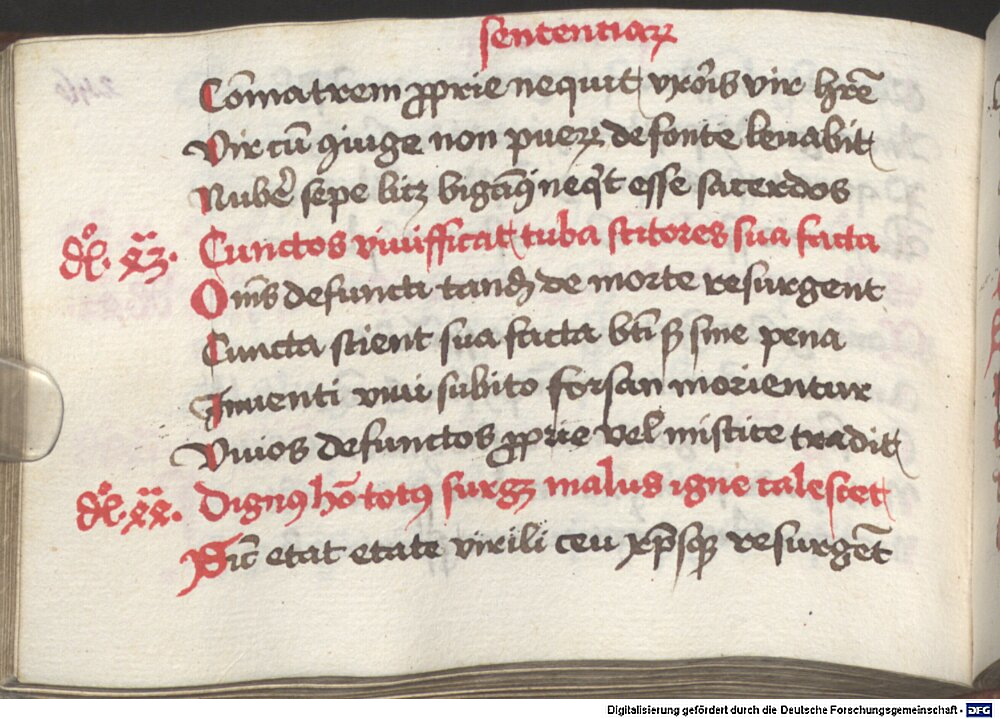 sententiaꝝ
Cōmatrem ꝓprie nequit vxor̄is vir hr̄e
Vir cū ꝯiuge non pueꝝ de fonte leuabit
Nube᷑ sepe licꝫ esse sacerdos
Cunctos viuifficat tuba scitores sua facta
Om̄s defuncta tandē de morte resurgent
Cuncta scient sua facta bt̄i sꝫ sine pena
Inuenti viui subito forsan morientur
Viuos defunctos ꝓprie vel mistice tradit
Dignꝰ hō totꝰ surgꝫ malus igne calescet
Sic̄ etat etate virili ceu xp̄sqꝫ resurgēt
Digitalisierung gefördert durch die Deutsche Forschungsgemeinschaft - DFG